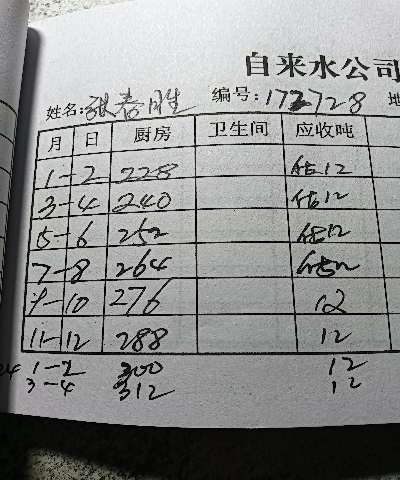 自来水公司
姓名: 张春胜 编号: 172728
月 日 厨房 卫生间 应收吨
1-2 228 估12
3-4 240 估12
5-6 252 估12
7-8 264 估12
9-10 276 12
11-12 288 12
1-2 300 12
3-4 312 12